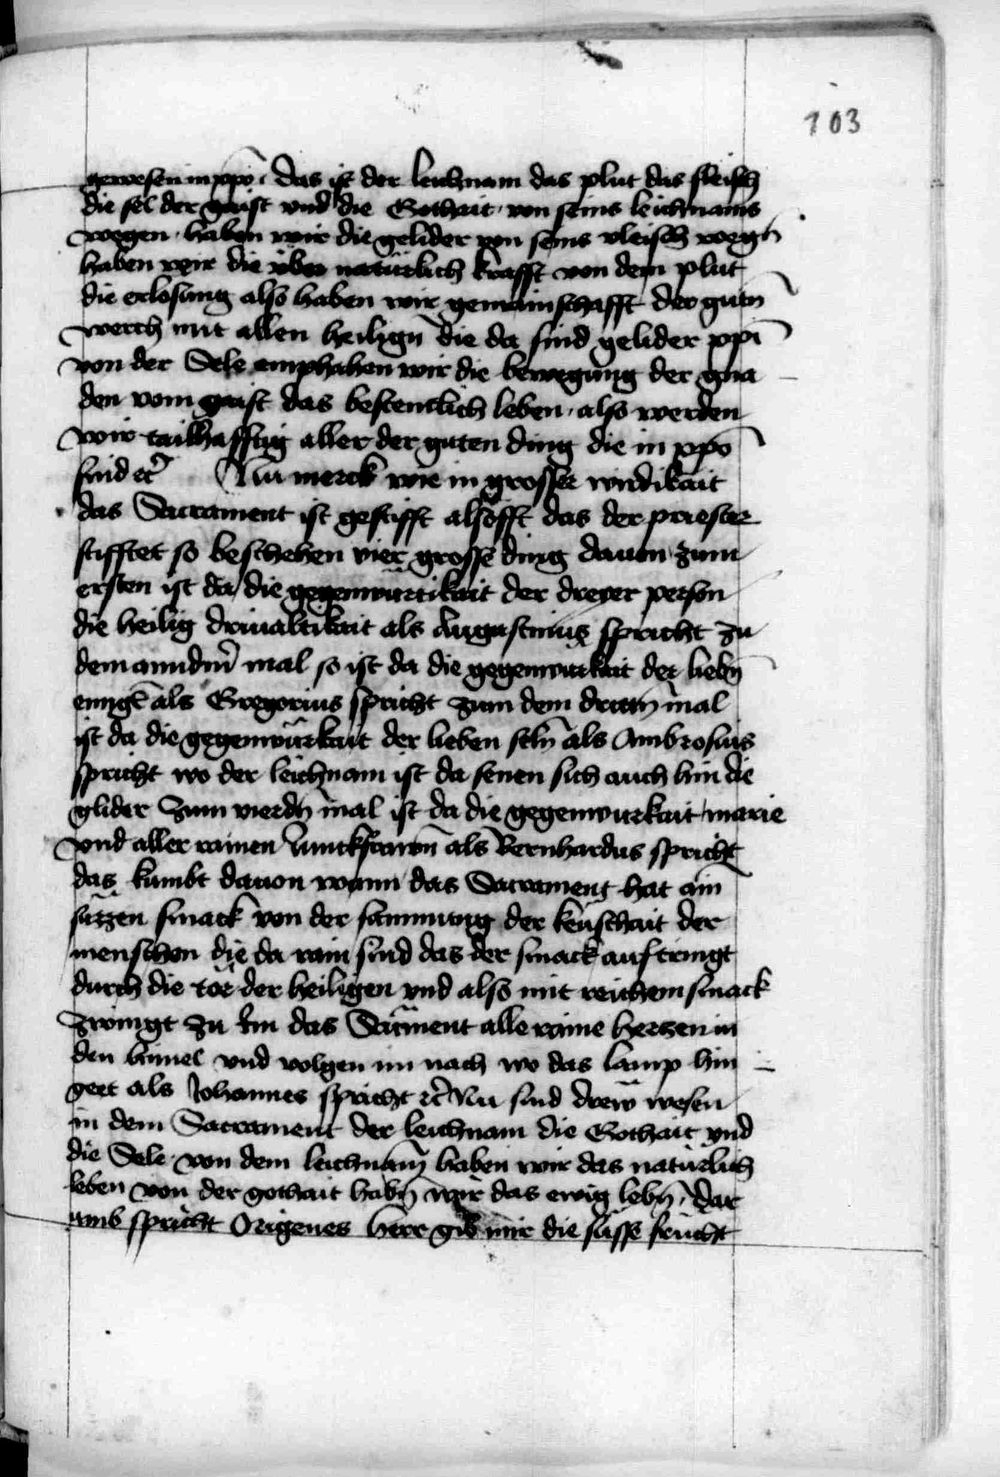 103
gewesen in xpo · das ist der leichnam das plut das fleisch
die sel der gaist vnd die Gothait · von seins leichnams
wegen · haben wir die gelider von seins vleisch wegn̄
haben wir die vber naturlich krafft von dem plut
die erlosung also haben wir gemainschafft der gutn̄
werch mit allen heilign̄ die da sind gelider xpi
von der Sele emphahen wir die bewegung der gna
den vom gaist das bestentlich leben · also werden
wir tailhafftig aller der guten ding die in xpo
sind ec̄ Nu merck wie in grosser wirdikait
das Sacrament ist gestifft als offt das der priester
stifftet so beschehen vier grosse ding dauon zum
ersten ist da die gegenwurtikait der dreyer person
die heilig driualtikait als Augustinus spricht zu
dem anndn̄ mal so ist da die gegenwurkait der liebn̄
engl̄ als Gregorius spricht zum dem dritn̄ mal
ist da die gegenwurkait der lieben seln̄ als Ambrosius
spricht wo der leichnam ist da senen sich auch hin die
glider Zum vierdn̄ mal ist da die gegenwurkait marie
vnd aller rainen Junckfrawn̄ als Bernhardus spricht
das kumbt dauon wann das Sacrament hat ain
suzzen smack von der samnung der keuschait der
menschen die da rain sind das der smack auf tringt
durch die tor der heiligen vnd also mit reichem smack
zwingt zu im das Sacr̄ment alle raine herzen in
den himel vnd volgen im nach wo das lamp hin
geet als Johannes spricht ec̄ Nu sind drew wesen
in dem Sacrament der leichnam die Gothait vnd
die Sele · von dem leichnam̄ haben wir das naturlich
leben von der gothait habn̄ wir das ewig lebn̄ · dar
umb spricht Origenes herr gib mir die susse frucht